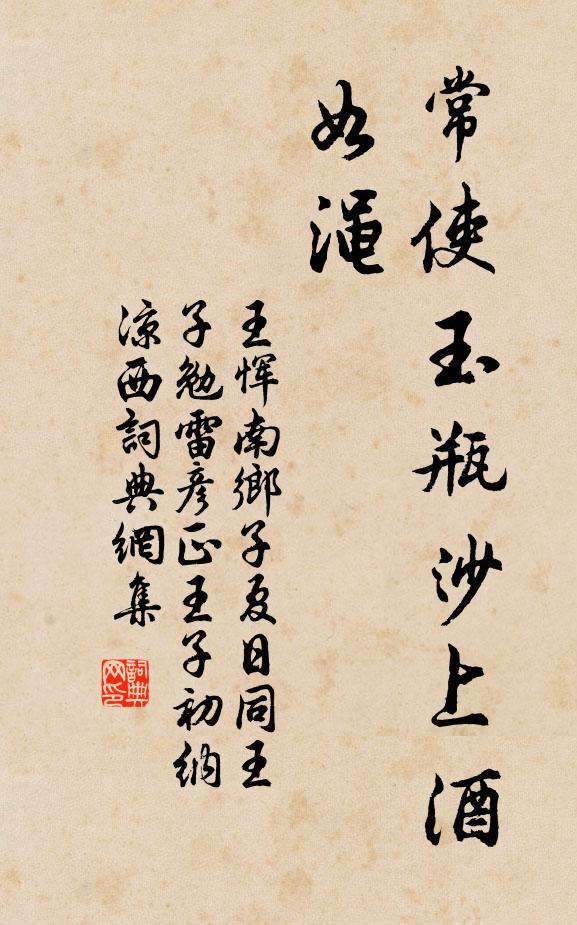 常使玉瓶沙上酒
如渑
王恽南鄉子夏日同王
子勉雷彦正王子初纳
凉西詞典網集
詞典
网印